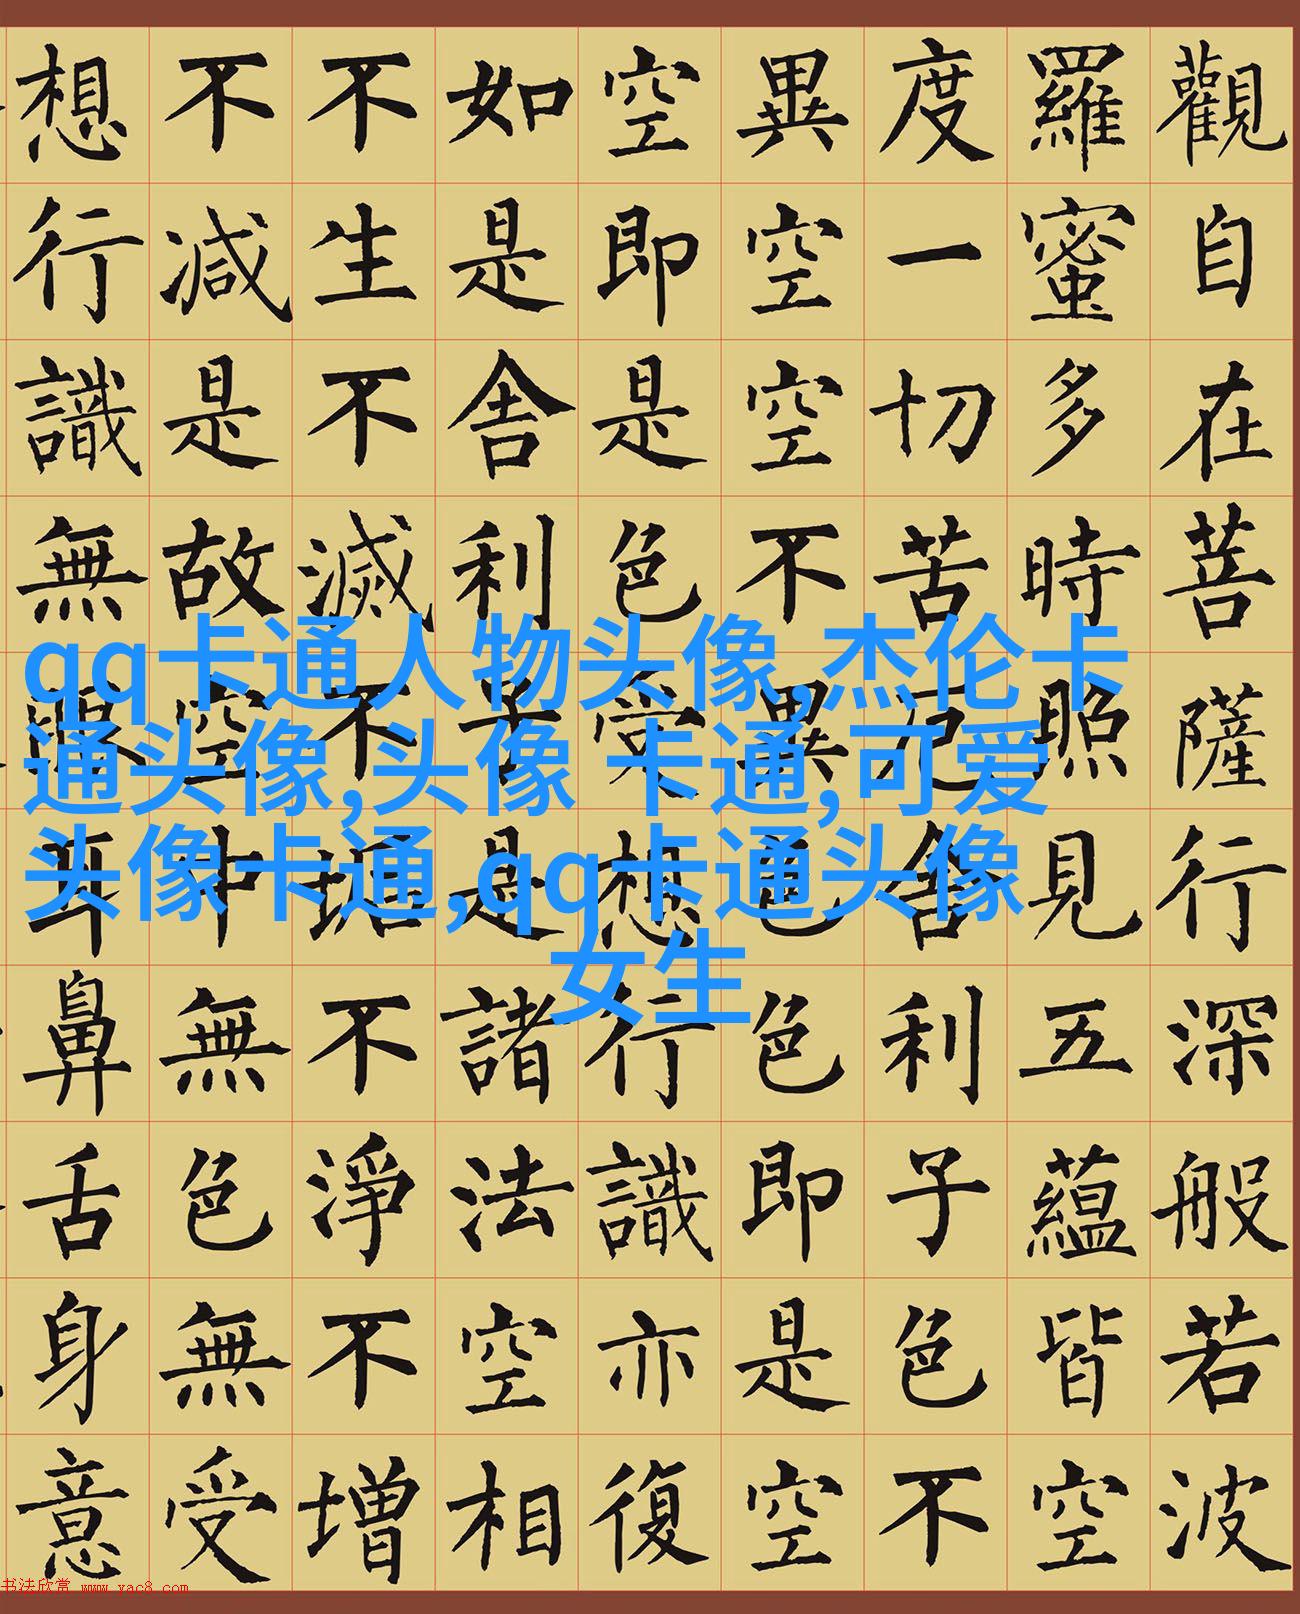 觀自在菩薩行深般若波
羅蜜多時照見五蘊皆空
度一切苦厄舍利子色不
異空空不異色色即是空
空即是色受想行識亦復
如是舍利子是諸法空相
不生不滅不垢不淨不增
不減是故空中無色無受
想行識無眼耳鼻舌身意
qq卡通人物头像,杰伦卡
通头像,头像 卡通,可爱
头像卡通,qq卡通头像
女生
书法欣赏 www.yac8.com